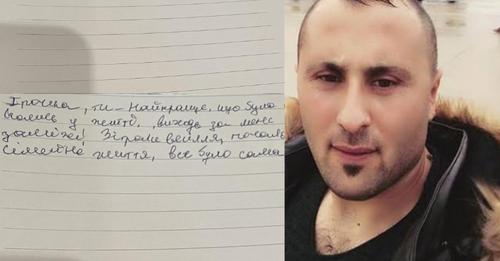 Ірочка, ти – найкраще, що було
колись у житті, виходь за мене
заміж! Зіграли весілля, почали
сімейне життя, все було